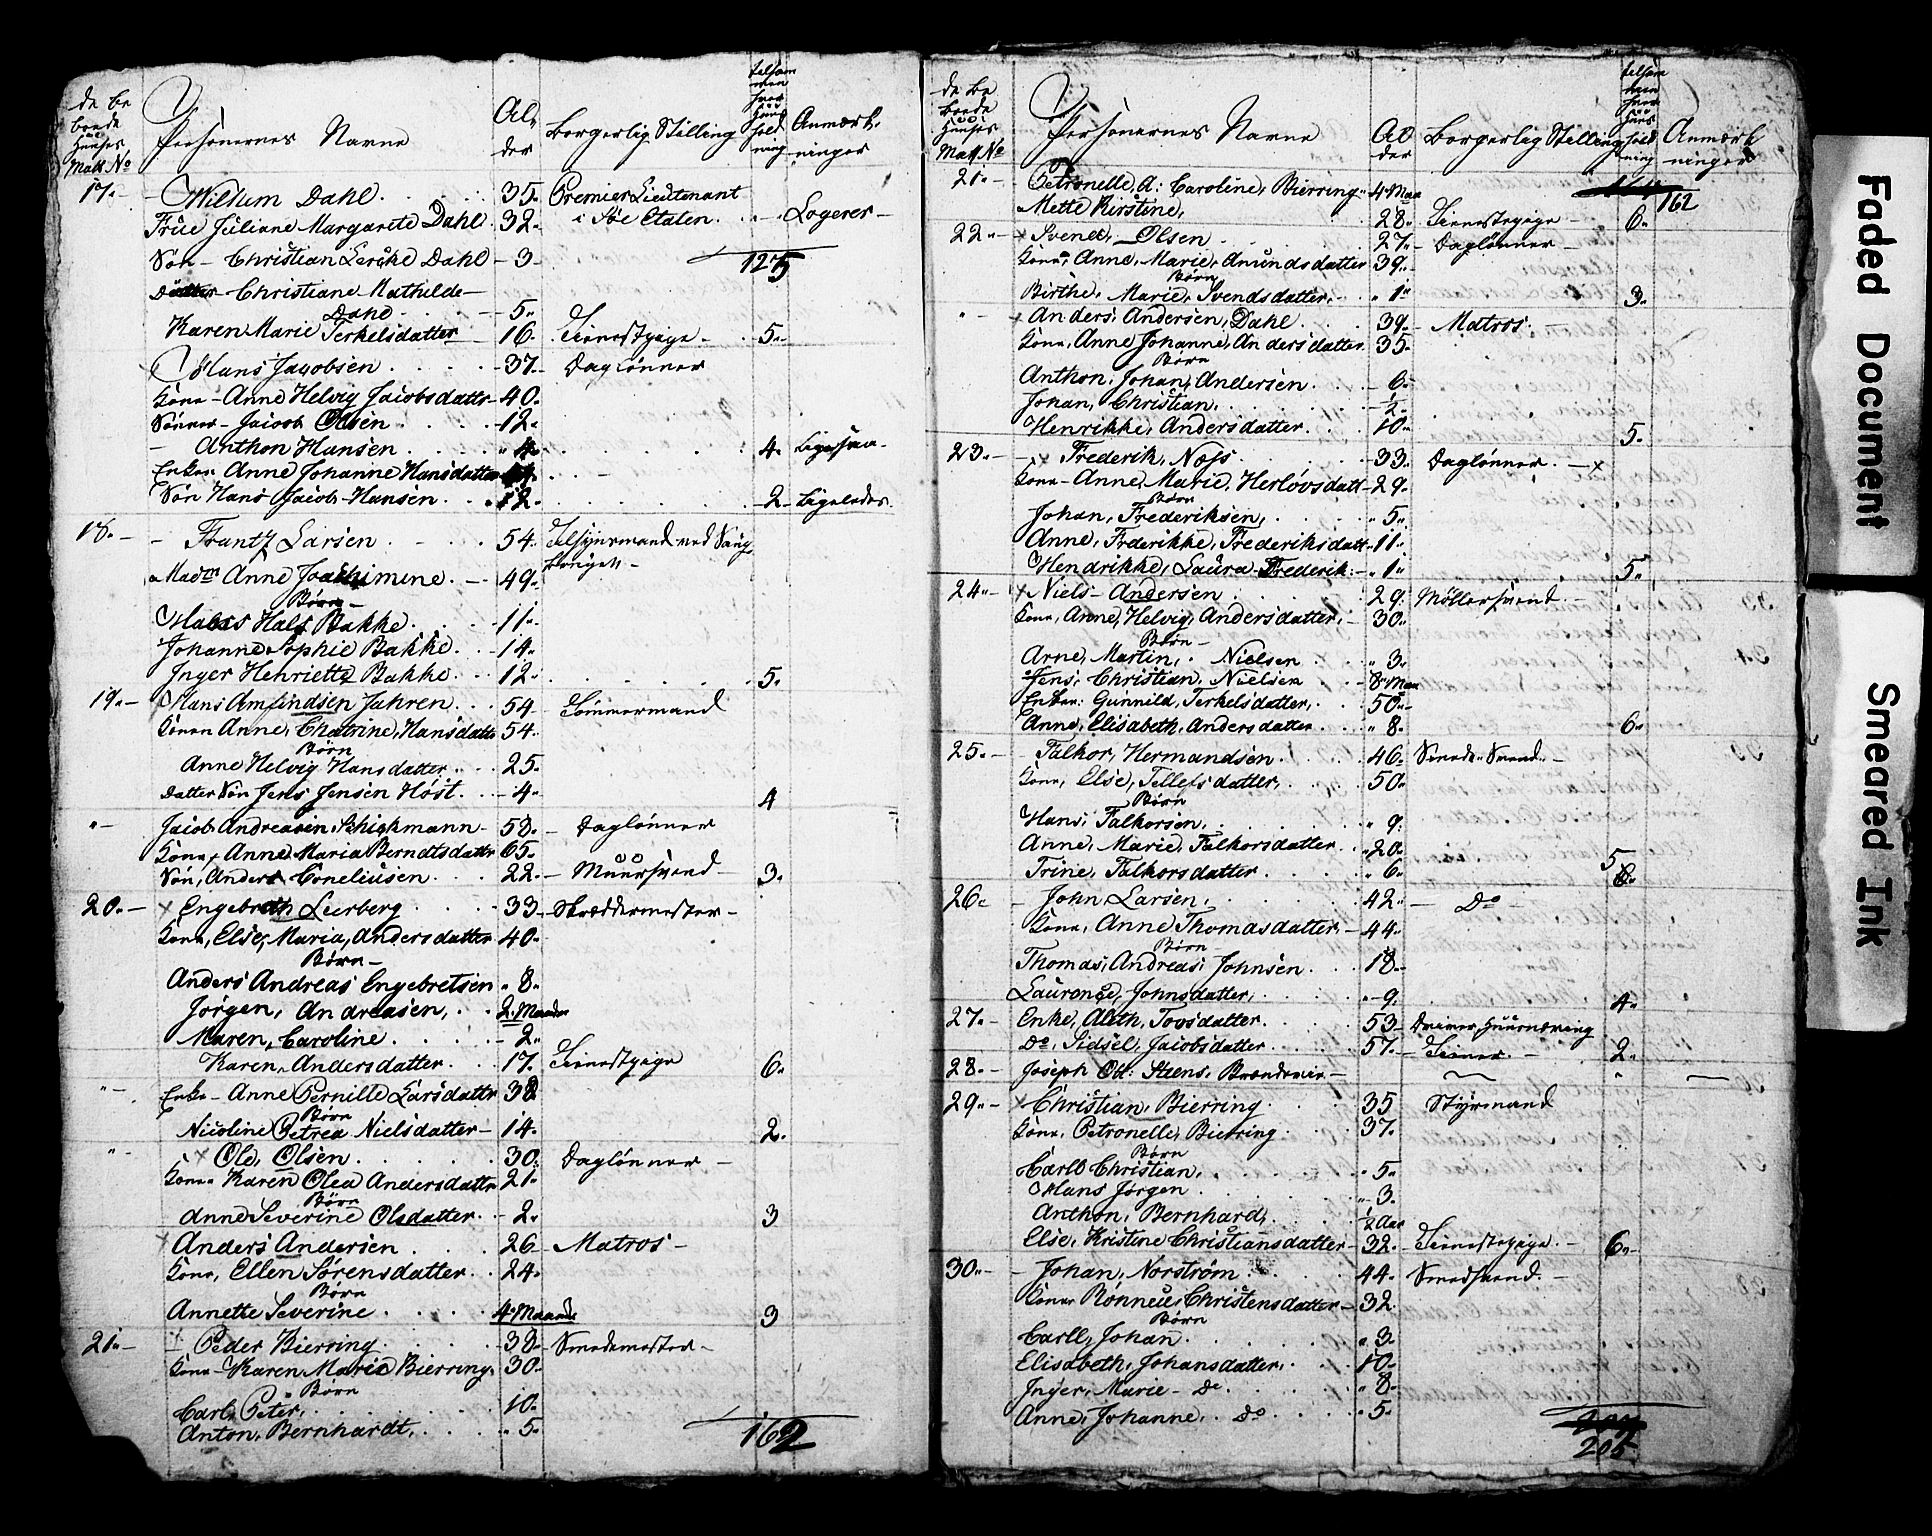 de be
boede
Huuses
Matt No
Personernes Navne
Al,
der
Borgerlig Stilling
tilsam
men
hver
Huus
hold
ning
Anmærk,
ninger
17.- Wildum Dahl. 35. Premier Lieutenant
Frue Juliane Margarete Dahl 32. i Søe Etaten. Logerer-
Søn - Christian Lerche Dahl - 3 - 125
Datter Christiane Mathilde
Dahl 5.
Karen Marie Terkelsdatter 16. Tienestpige. 5.
Hans Jacobsen 37. Daglønner
Kone - Anne Helvig Jacobsdattr 40.
Sønner - Jacob Olsen 12.
- Anthon Hansen 4. 4. Ligesaa-
Enken Anne Johanne Hansdatter
Søn Hans Jacob Hansen 12. 2 - Ligeledes.
18. - Frantz Larsen 54. Tilsynsmand ved Saug
bruget-
Madm Anne Joachimine. 49.
Børn -
Hals Bakke. 11.
Johanne Sophie Bakke 14.
Inger Henriette Bakke. 12. 5.
19.- Hans Amundsen Jahren. 54 Tømmermand
Konen Anne, Chatrine, Hansdattr 54.
Børn
Anne Helvig Hansdatter 25.
Datter Søn Jens Jensen Høst. 4. 4
"- Jacob Andreasen, Schickmann 58. - Daglønner
Kone, Anne Maria Berndtsdattr 65.
Søn, Anders Corneliusen. 22. - Muursvend - 3.
20.- x Engebreth Leerberg 33 - Skræddermester -
Kone, Else, Maria, Andersdatter 40.
Børn -
Anders Andreas Engebretsen " 8.
Jørgen, Andreasen, 2. Maaneder
Maren, Caroline 2.
Karen, Andersdatter 17. Tienestpige 6.
"- Enke - Anne Pernille Larsdatter 38
Børn
Nicoline Petrea Nielsdatter - 14. 2.
"- x Ole, Olsen 30. Daglønner -
Kone Karen Olea Andersdattr 21.
Børn
Anne Severine Olsdatter. 2. 3
x Anders Andersen 26 - Matros -
Kone, Ellen Sørensdatter. 24.
Børn
Annette Severine 4. Maaneder 3
21.- Peder Bierring. 38. Smedemester -
Kone - Karen Marie Bierring, 30.
Børn
Carl, Peter, 10.
Anton, Bernhardt, " 5. 162
de be
boede
Huuses
Matt No
Personernes Navne
Al
der
Borgerlig Stilling
tilsam
men
hver
Huus
hold
ning
Anmærk
ninger
21.- Petronelle, A: Caroline, Bierring 4 Maa 162
Mette Kirstine, 28. Tienestepige - 6.
22.- x Svend, Olsen 27. Daglønner -
Kone, Anne, Marie, Amundsdatter 39.
Børn
Birthe, Marie, Svendsdatter, " 1" 3.
"- x Anders, Andersen, Dahl 39. Matros.
Kone, Anne Johanne, Andersdatter 35.
Børn
Anthon, Johan, Andersen 6.
Johan, Christian, ½.
Henrikke, Andersdatter 10. 5.
23.- x Frederik, Næss 33. Daglønner. - x
Kone - Anne, Marie, Herløvsdatt - 29.
Børn
Johan, Frederiksen, " 5.
Anne, Frderikke, Frederiksdatt 11.
Hendrikke, Laura Frederik: " 1. 5.
24.- x Niels Andersen 29. Møllersvend. -
Kone, Anne, Helvig, Andersdatter, 30.
Børn -
Arne, Martin, Nielsen " 3.
Jens, Christian, Nielsen 8 Maa
Enken: Gunnild, Terkelsdatter, 50.
Anne, Elisabeth, Andersdatter " 8. 6.
25.- Falkor, Hermandsen 46. Smede-Svend. -
Kone, Else, Tellefsdatter, 50.
Børn
Hans, Falkorsen, " 9.
Anne, Marie, Falkorsdatter 20.
Trine, Falkorsdatter " 6. 5
26. - John Larsen, 42. - Do -
Kone, Anne Thomasdatter - 44.
Børn
Thomas, Andreas, Johnsen 18.
Lauronce, Johnsdatter, " 9. 4.
27.- Enke, Aleth, Tovsdatter. 53 Driver, Huusnæring
Do, Sidsel, Jacobsdatter 57. - Tiener. - 2.
28.- Joseph Brænderie -
29.- x Christian, Bierring 35 Styrmand
Kone, Petronelle, Bierring 37.
Børn
Carl Christian, " 5.
Hans Jørgen " 3.
Anthon, Bernhard,
Else, Kristine Christiansdatter 32. - Tienestepige. - 6.
30.- Johan, Norström 44. Smedsvend. -
Kone Christensdatter 32.
Børn
Carll, Johan " 3.
Elisabeth, Johansdatter, 10.
Inger, Marie - Do " 8.
Anne, Johanne, Do " 5.
205
Faded Document
Smeared Ink